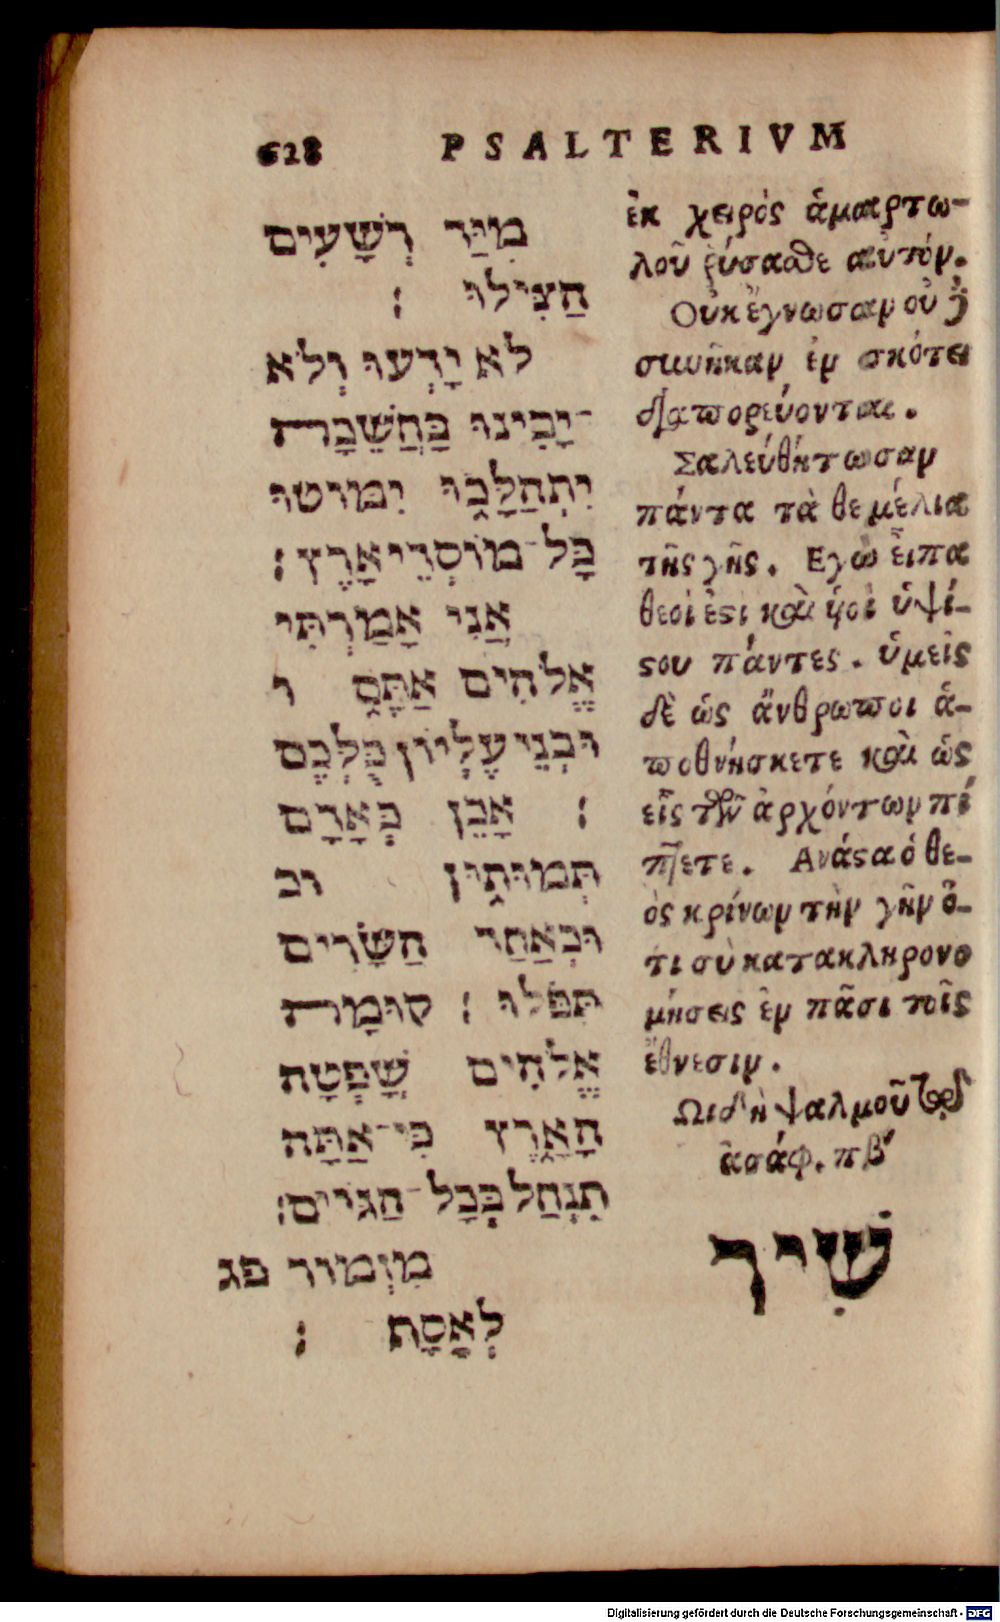 628 PSALTERIVM
מִיַּד רְשָׁעִים
הַצִּילוּ :
לֹא יָדְעוּ וְלֹא
יָבִינוּ בַּחֲשֵׁכָה
יִתְהַלָּכוּ יִמּוֹטוּ
כָּל־מוֹסְדֵי אָרֶץ :
אֲנִי אָמַרְתִּי
אֱלֹהִים אַתֶּם ו
וּבְנֵי עֶלְיוֹן כֻּלְּכֶם
: אָכֵן כְּאָדָם
תְּמוּתוּן וכ
וּכְאַחַד הַשָּׂרִים
תִּפֹּלוּ : קוּמָה
אֱלֹהִים שָׁפְטָה
הָאָרֶץ כִּי־אַתָּה
תִנְחַל בְּכָל־הַגּוֹיִם :
מִזְמוֹר פג
לְאָסָף :
ἐκ χειρὸς ἁμαρτω-
λοῦ ῥύσασθε αὐτόν.
Οὐκ ἔγνωσαν οὐδὲ
συνῆκαν ἐν σκότει
διαπορεύονται.
Σαλευθήτωσαν
πάντα τὰ θεμέλια
τῆς γῆς. Εγὼ εἶπα
θεοί ἐστι καὶ ὑοὶ ὑψί-
στου πάντες. ὑμεῖς
δὲ ὡς ἄνθρωποι ἀ-
ποθνήσκετε καὶ ὡς
εἷς τῶν ἀρχόντων πί
πτετε. Ανάστα ὁ θε-
ὸς κρίνων τὴν γῆν ὅ-
τι σὺ κατακληρονο
μήσεις ἐν πᾶσι τοῖς
ἔθνεσιν.
Ωιδὴ ψαλμοῦ τῷ
ἀσάφ. πβʹ
שִׁיר
Digitalisierung gefördert durch die Deutsche Forschungsgemeinschaft - DFG